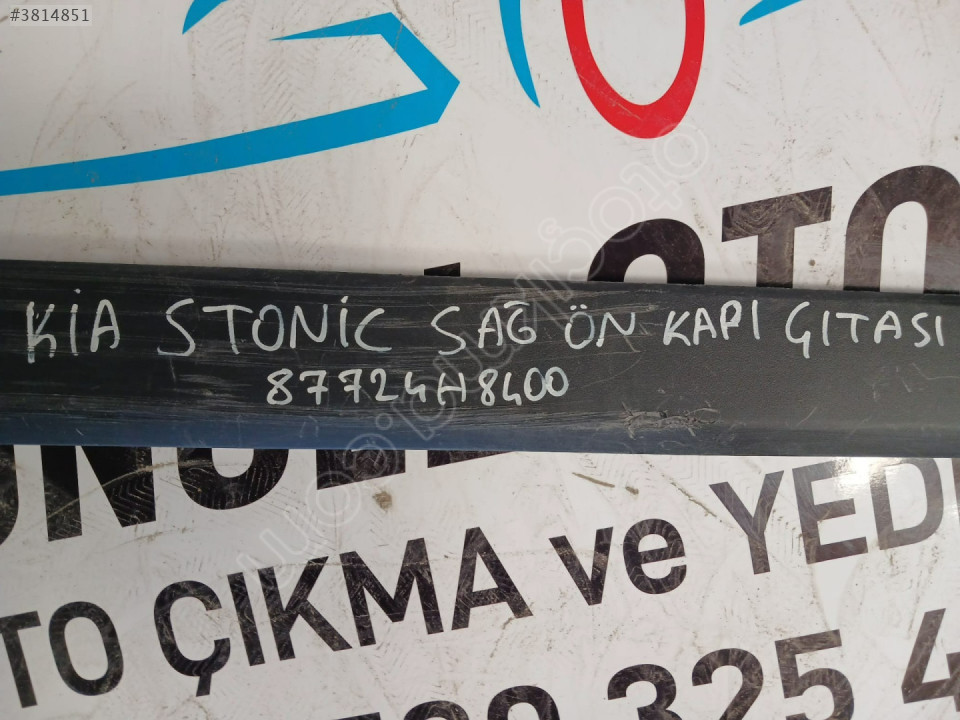 #3814851
OTO
KİA STONİC SAĞ ÖN KAPI ÇITASI
87724H8400
TO ÇIKMA ve YED
325 4